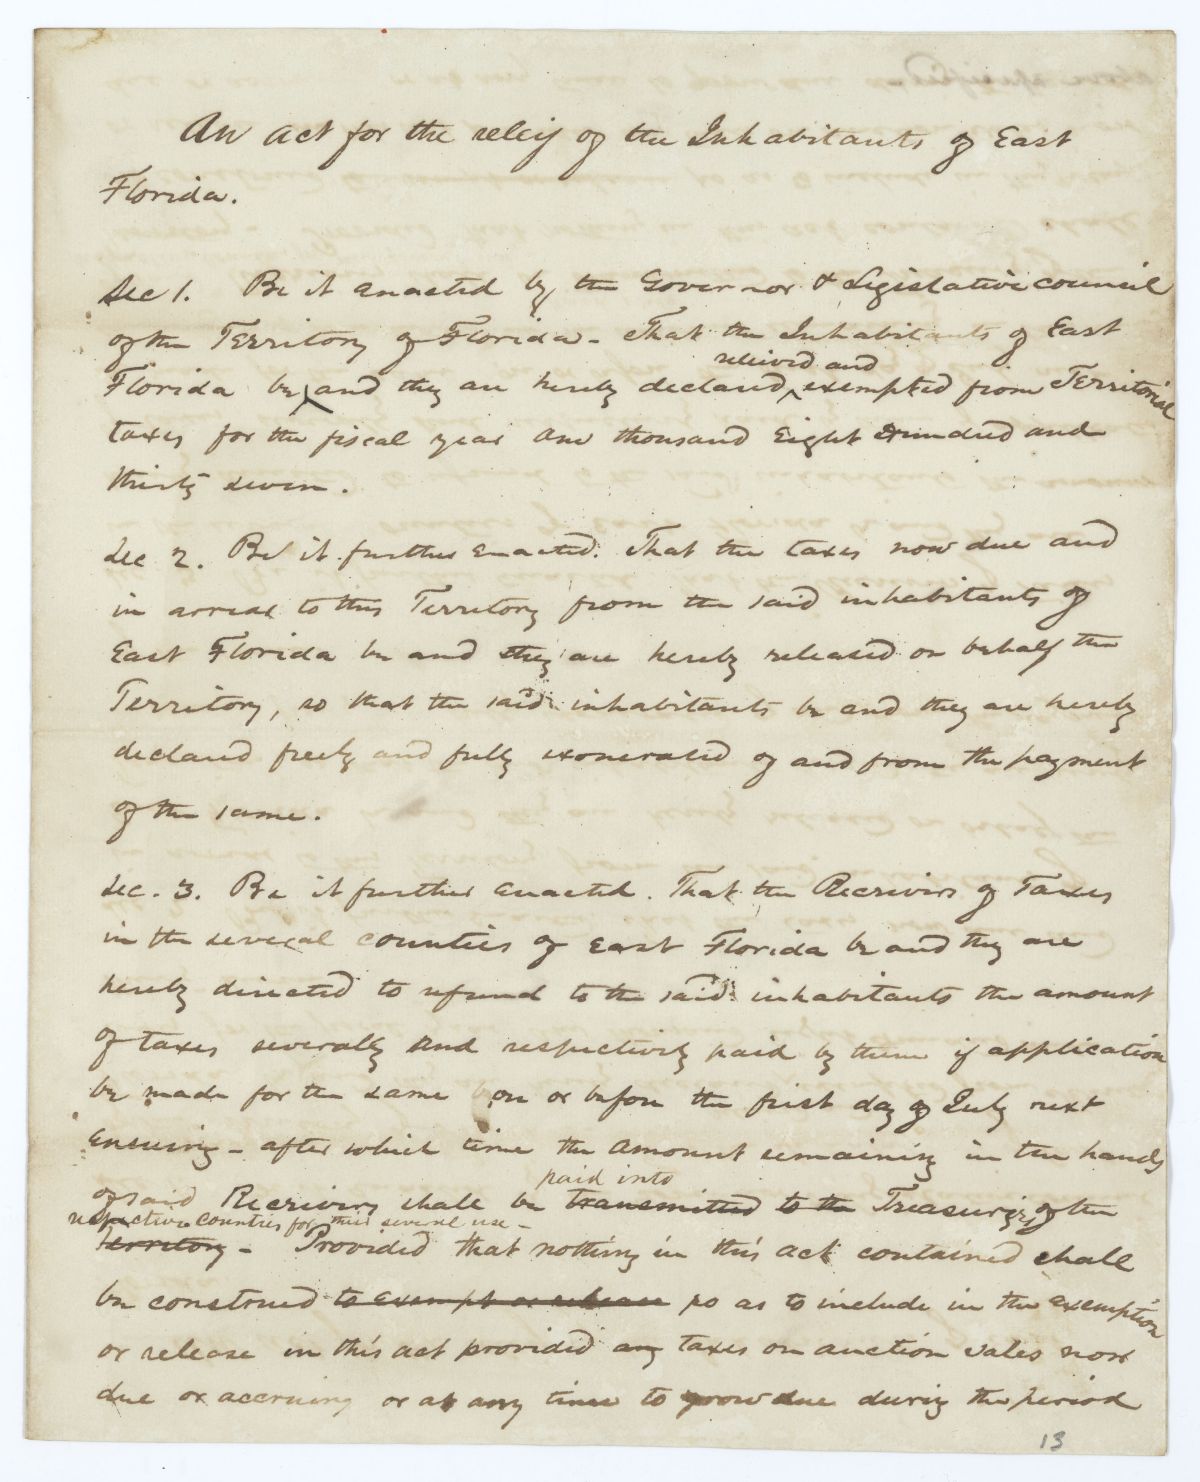 An act for the releif of the Inhabitants of East
Florida.
Sec 1. Be it enacted by the Governor & Legislative council
of the Territory of Florida - That the Inhabitants of East
releived and
Florida be and they are hereby declared exempted from Territorial
taxes for the fiscal year one thousand Eight Hundred and
thirty seven.
Sec 2. Be it further enacted. That the taxes now due and
in arrear to this Territory from the said inhabitants of
East Florida be and they are hereby released on behalf the
Territory, so that the said inhabitants be and they are hereby
declared freely and fully exonerated of and from the payment
of the same.
Sec. 3. Be it further enacted. That the Receivers of Taxes
in the several counties of East Florida be and they are
hereby directed to refund to the said inhabitants the amount
of taxes severally and respectively paid by them if application
be made for the same on or before the first day of July next
ensuing - after which time the amount remaining in the hands
paid into
of said Receivers shall be transmitted to the Treasuries of the
respective Counties for their several use -
Territory - Provided that nothing in this act contained shall
be construed to exempt or release so as to include in the exemption
or release in this act provided any taxes on auction sales now
due or accruing or at any time to grow due during the period
13